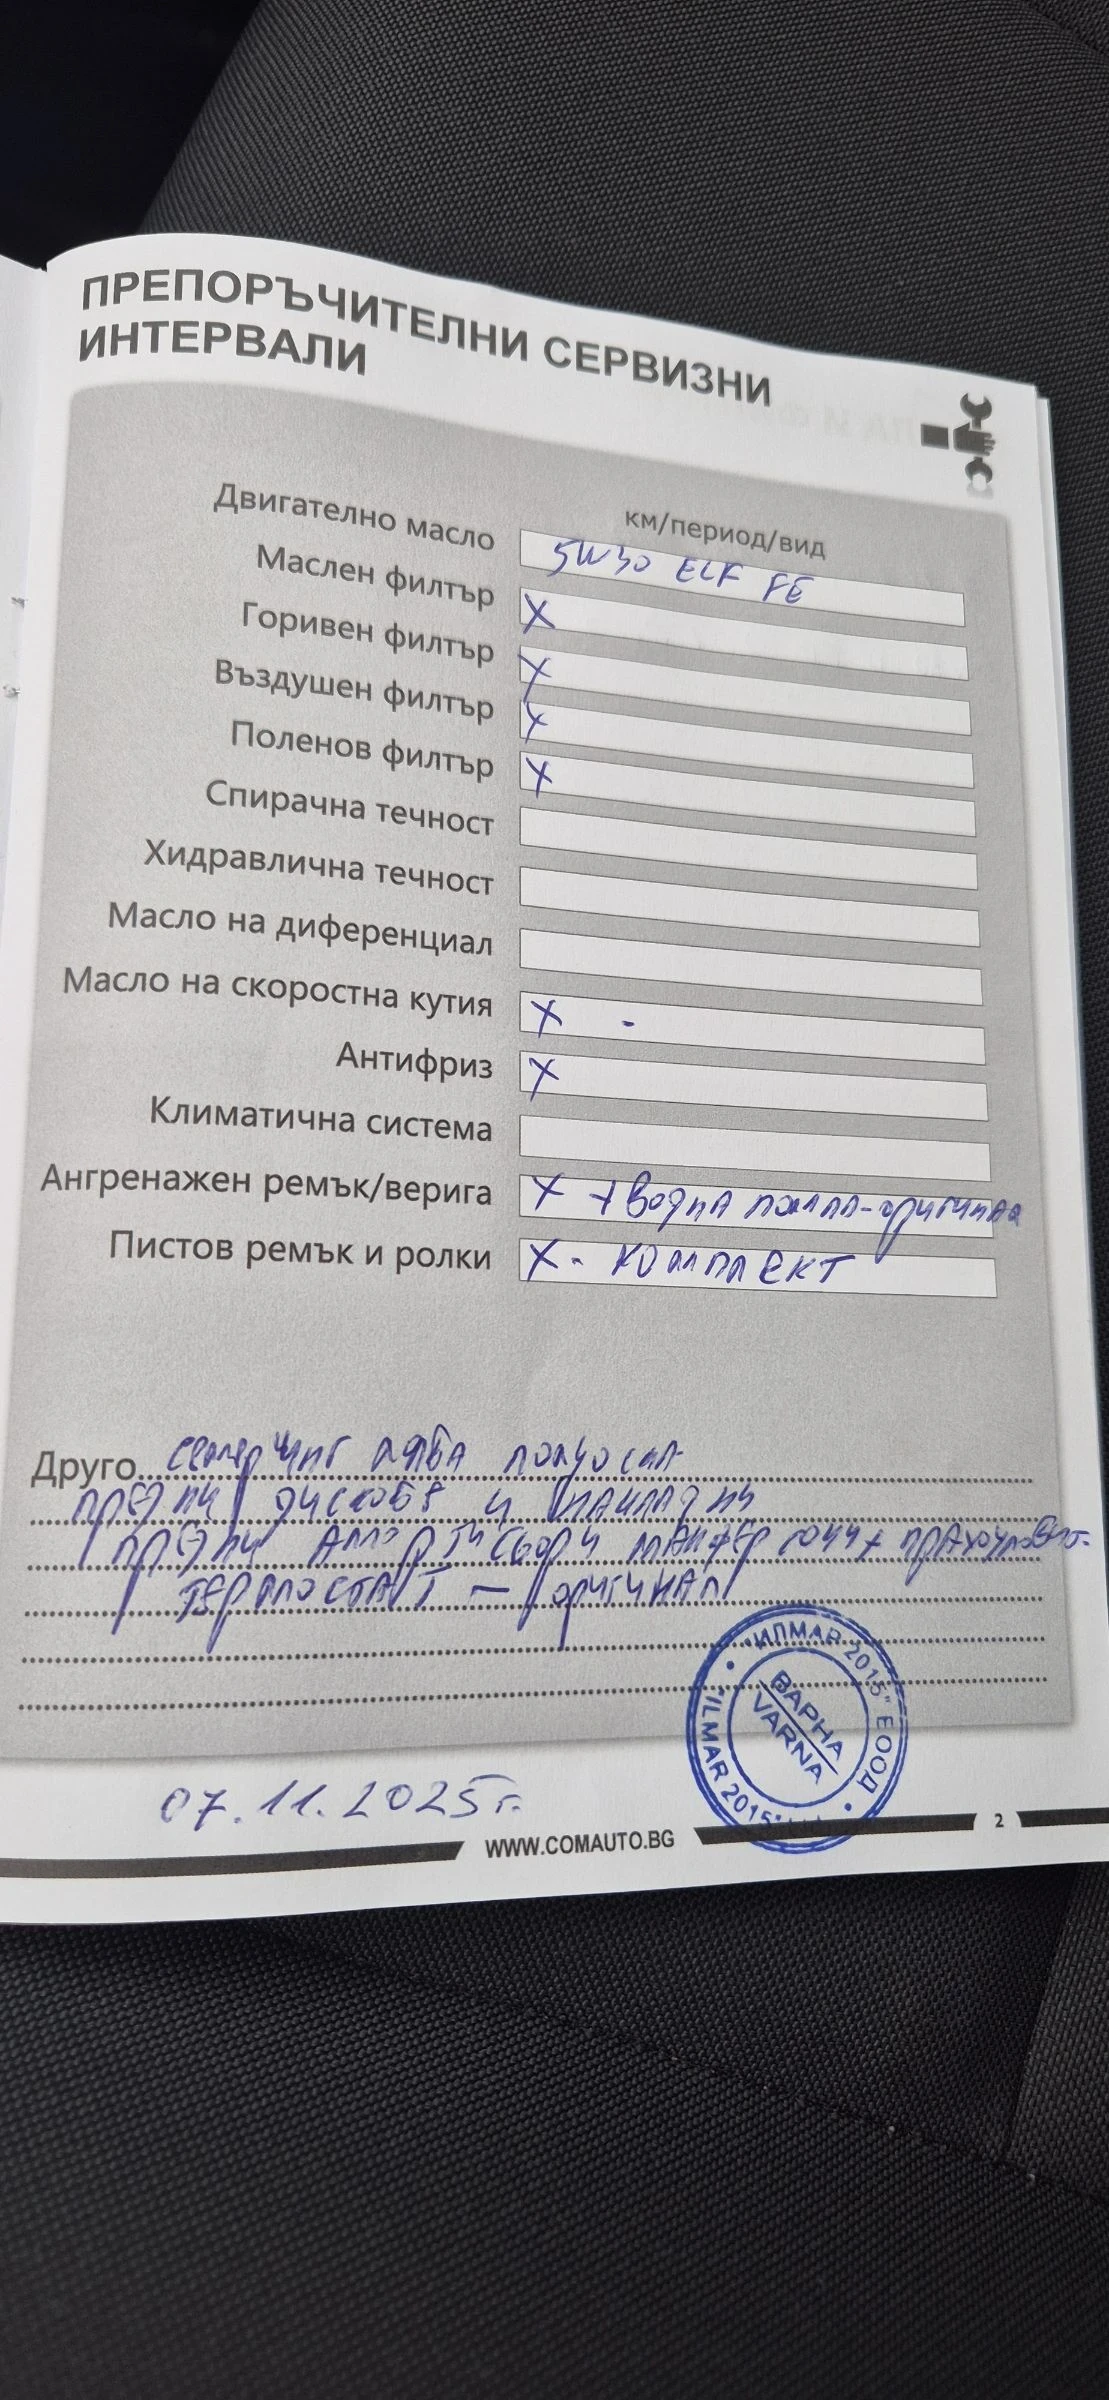 ПРЕПОРЪЧИТЕЛНИ СЕРВИЗНИ
ИНТЕРВАЛИ
км/период/вид
Двигателно масло 5W30 ELF FE
Маслен филтър X
Горивен филтър X
Въздушен филтър X
Поленов филтър X
Спирачна течност
Хидравлична течност
Масло на диференциал
Масло на скоростна кутия X -
Антифриз X
Климатична система
Ангренажен ремък/верига X + Водна помпа-оригинал
Пистов ремък и ролки X - комплект
Друго семеринг лява полуоска
предни дискове и накладки
предни амортисьори манфер тонч+ прахоуловит.
термостат - оригинал
"ИЛМАР 2015" ЕООД
ВАРНА
VARNA
"ILMAR 2015"
07.11.2025г.
WWW.COMAUTO.BG
2